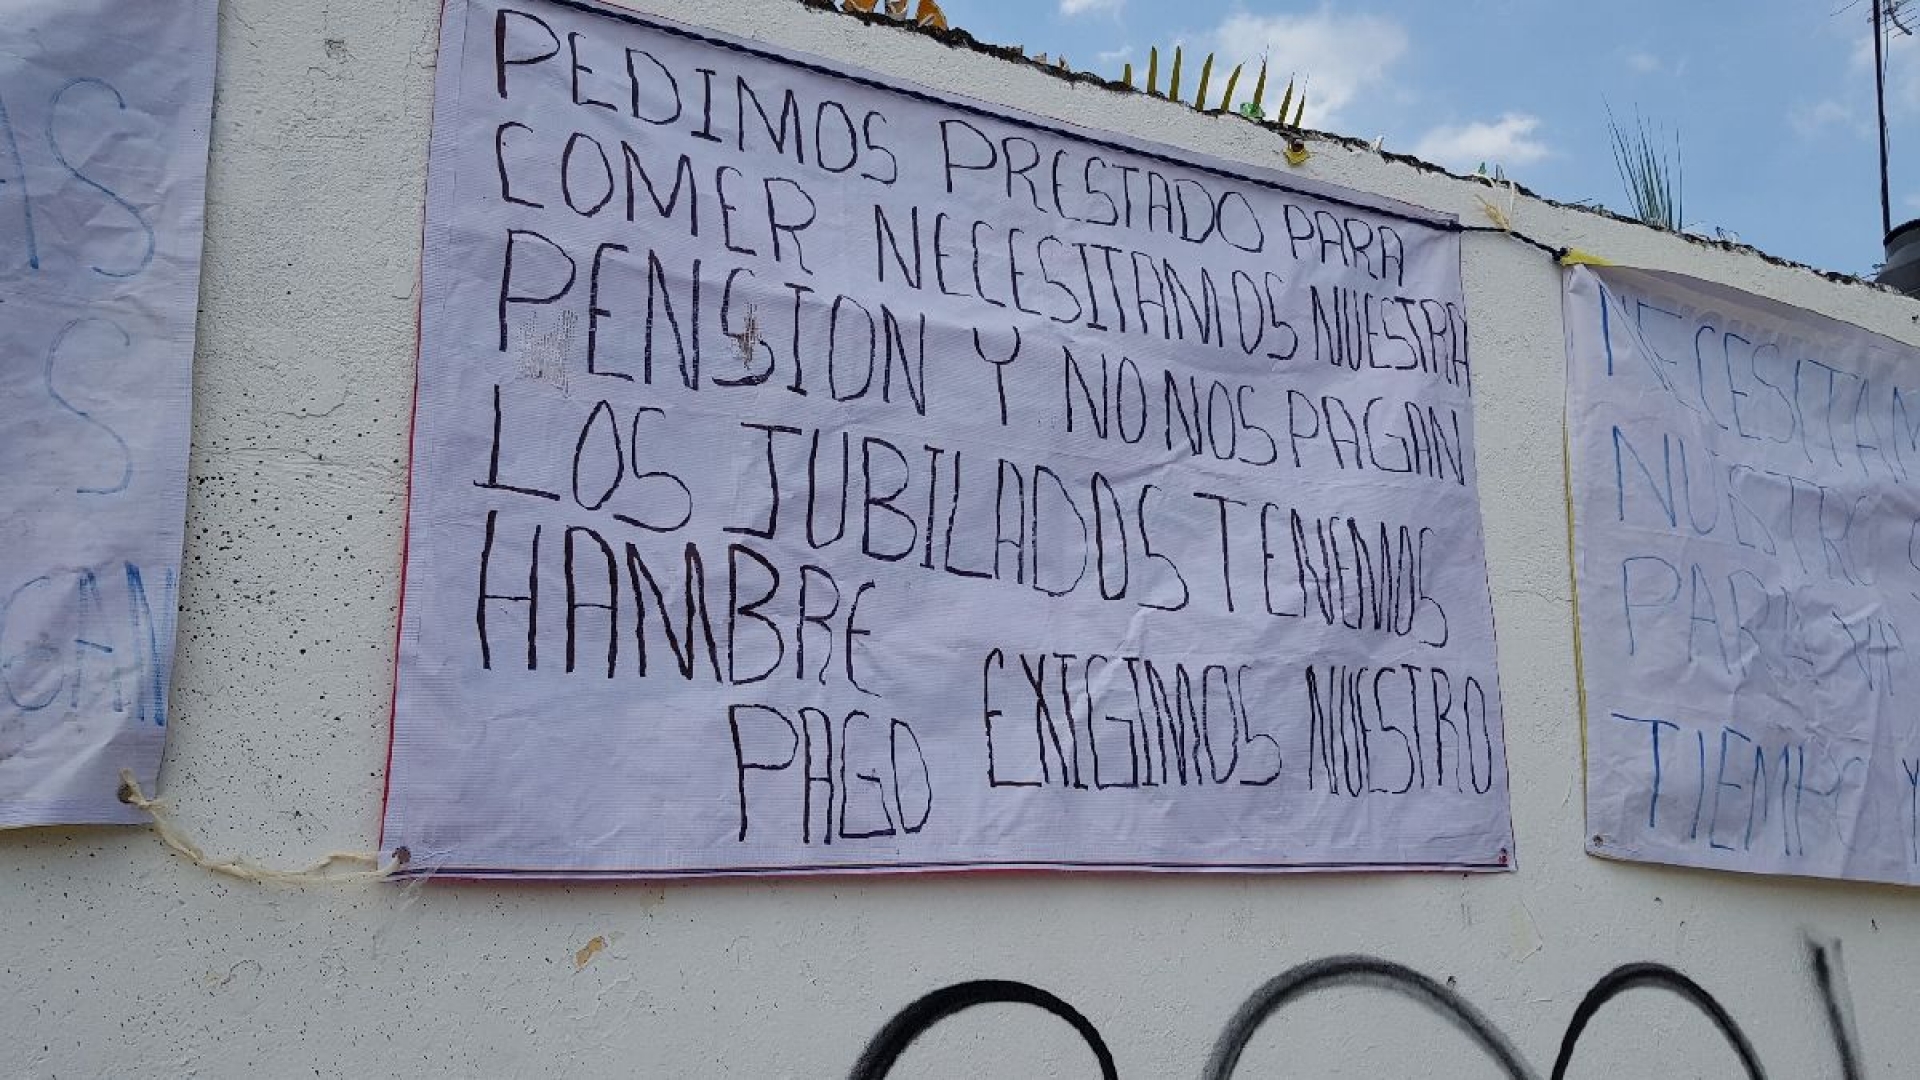 AS
S
CAN
PEDIMOS PRESTADO PARA
COMER NECESITAMOS NUESTRA
PENSION Y NO NOS PAGAN
LOS JUBILADOS TENEMOS
HAMBRE
EXIGIMOS NUESTRO
PAGO
NECESITAM
NUESTRO
PAR
TIEMPO Y